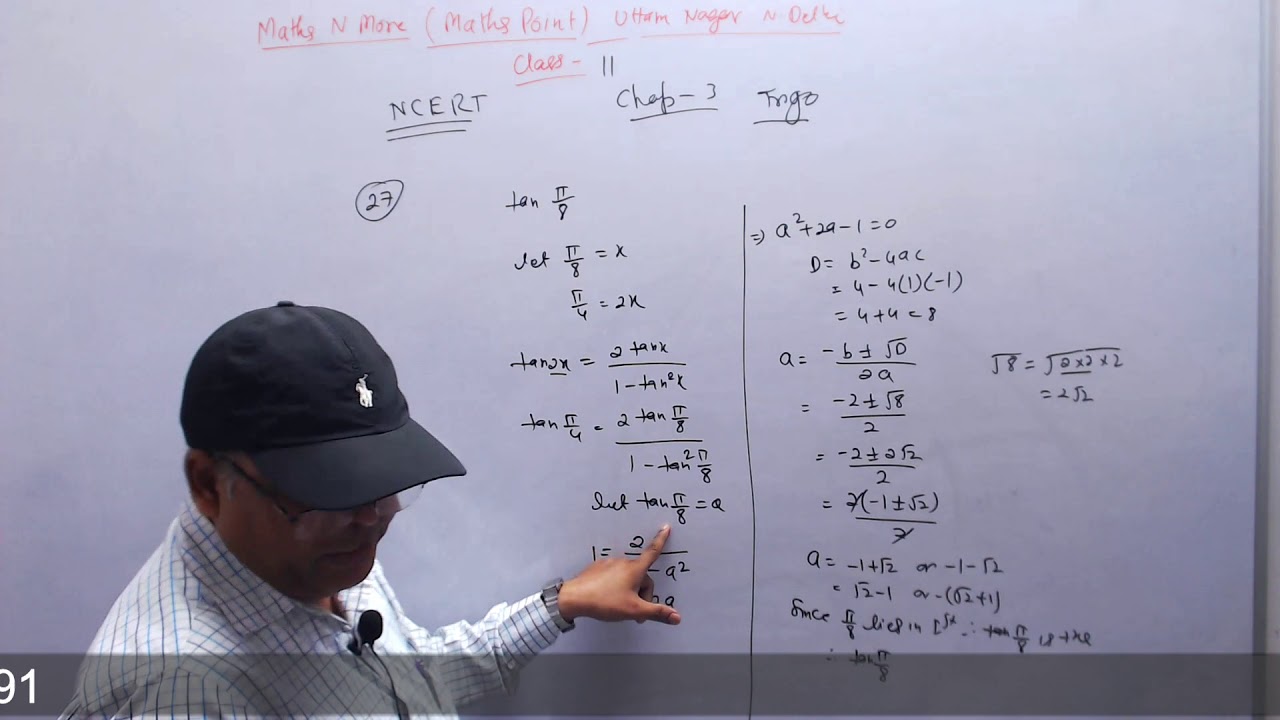 Maths N More (Maths Point) Uttam Nagar N. Delhi
Class - 11
NCERT Chap - 3 Trigo
27
tan π/8
let π/8 = x
π/4 = 2x
tan2x = 2 tanx / 1 - tan²x
tan π/4 = 2 tan π/8 / 1 - tan² π/8
let tan π/8 = a
1 = 2 / - a²
2a
⇒ a² + 2a - 1 = 0
D = b² - 4ac
= 4 - 4(1)(-1)
= 4 + 4 = 8
a = -b ± √D / 2a
= -2 ± √8 / 2
= -2 ± 2√2 / 2
= 2(-1 ± √2) / 2
a = -1 + √2 or -1 - √2
= √2 - 1 or -(√2 + 1)
Since π/8 lies in Ist ∴ tan π/8 is +ve
∴ tan π/8
√8 = √2×2×2
= 2√2
91